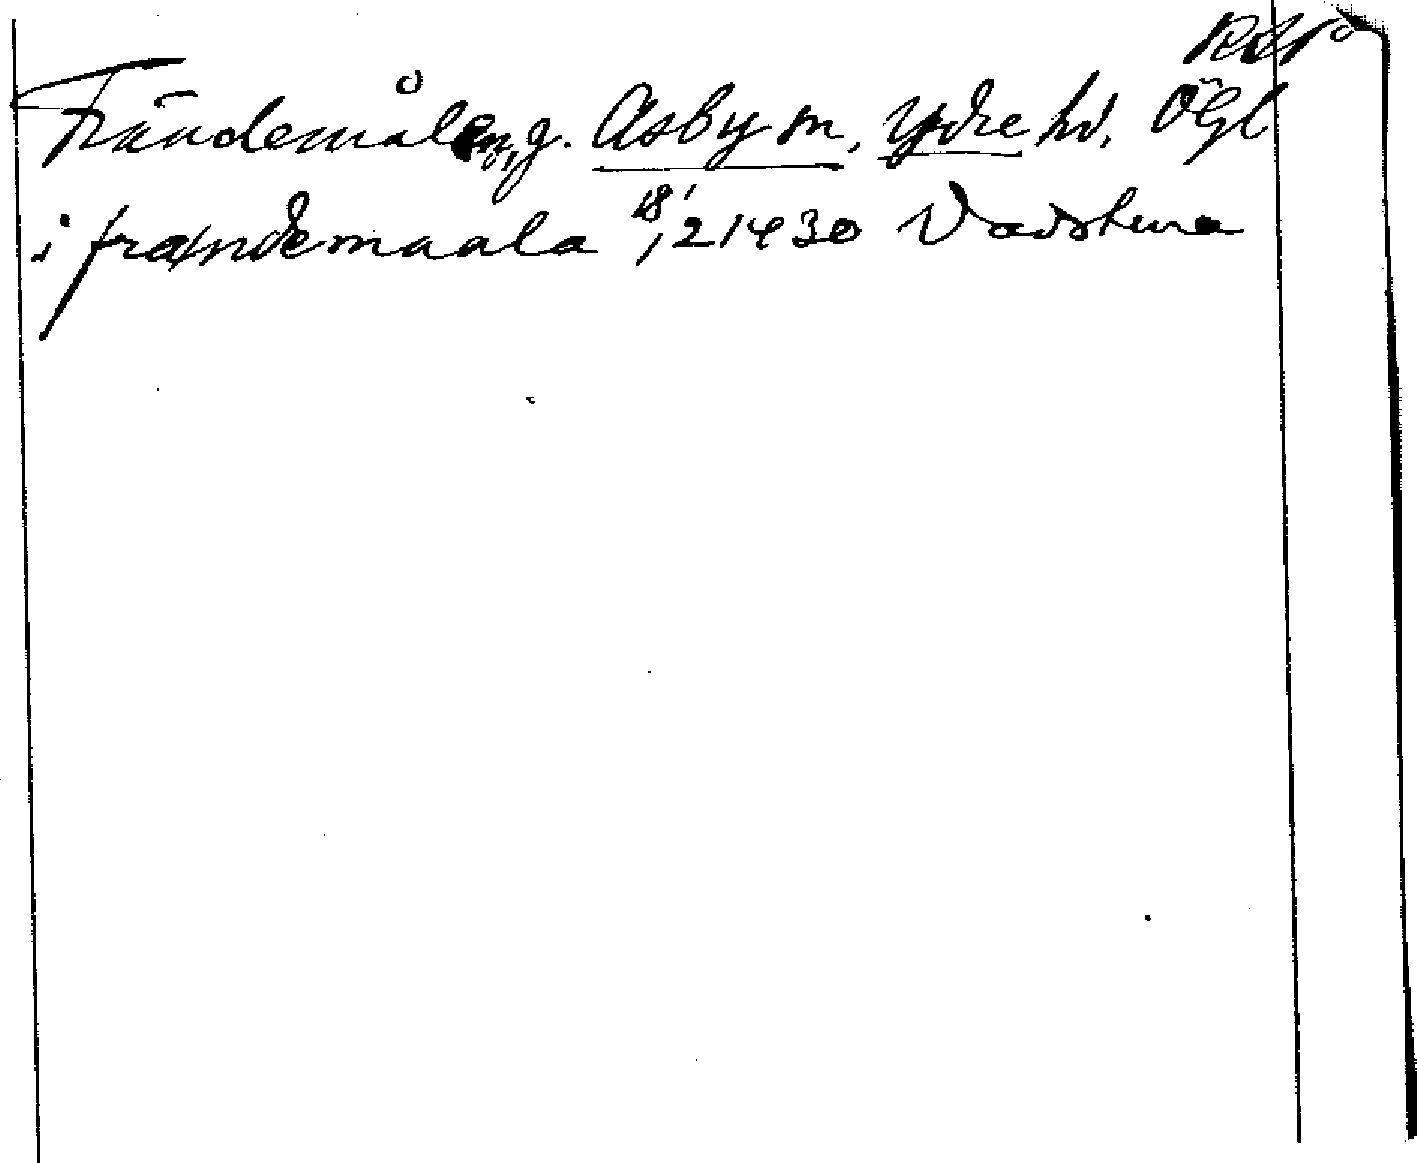 Frändemålen, g. Asby sn, Ydre hd, Ögl
i frændemaala 18/2 1430 Vadstena